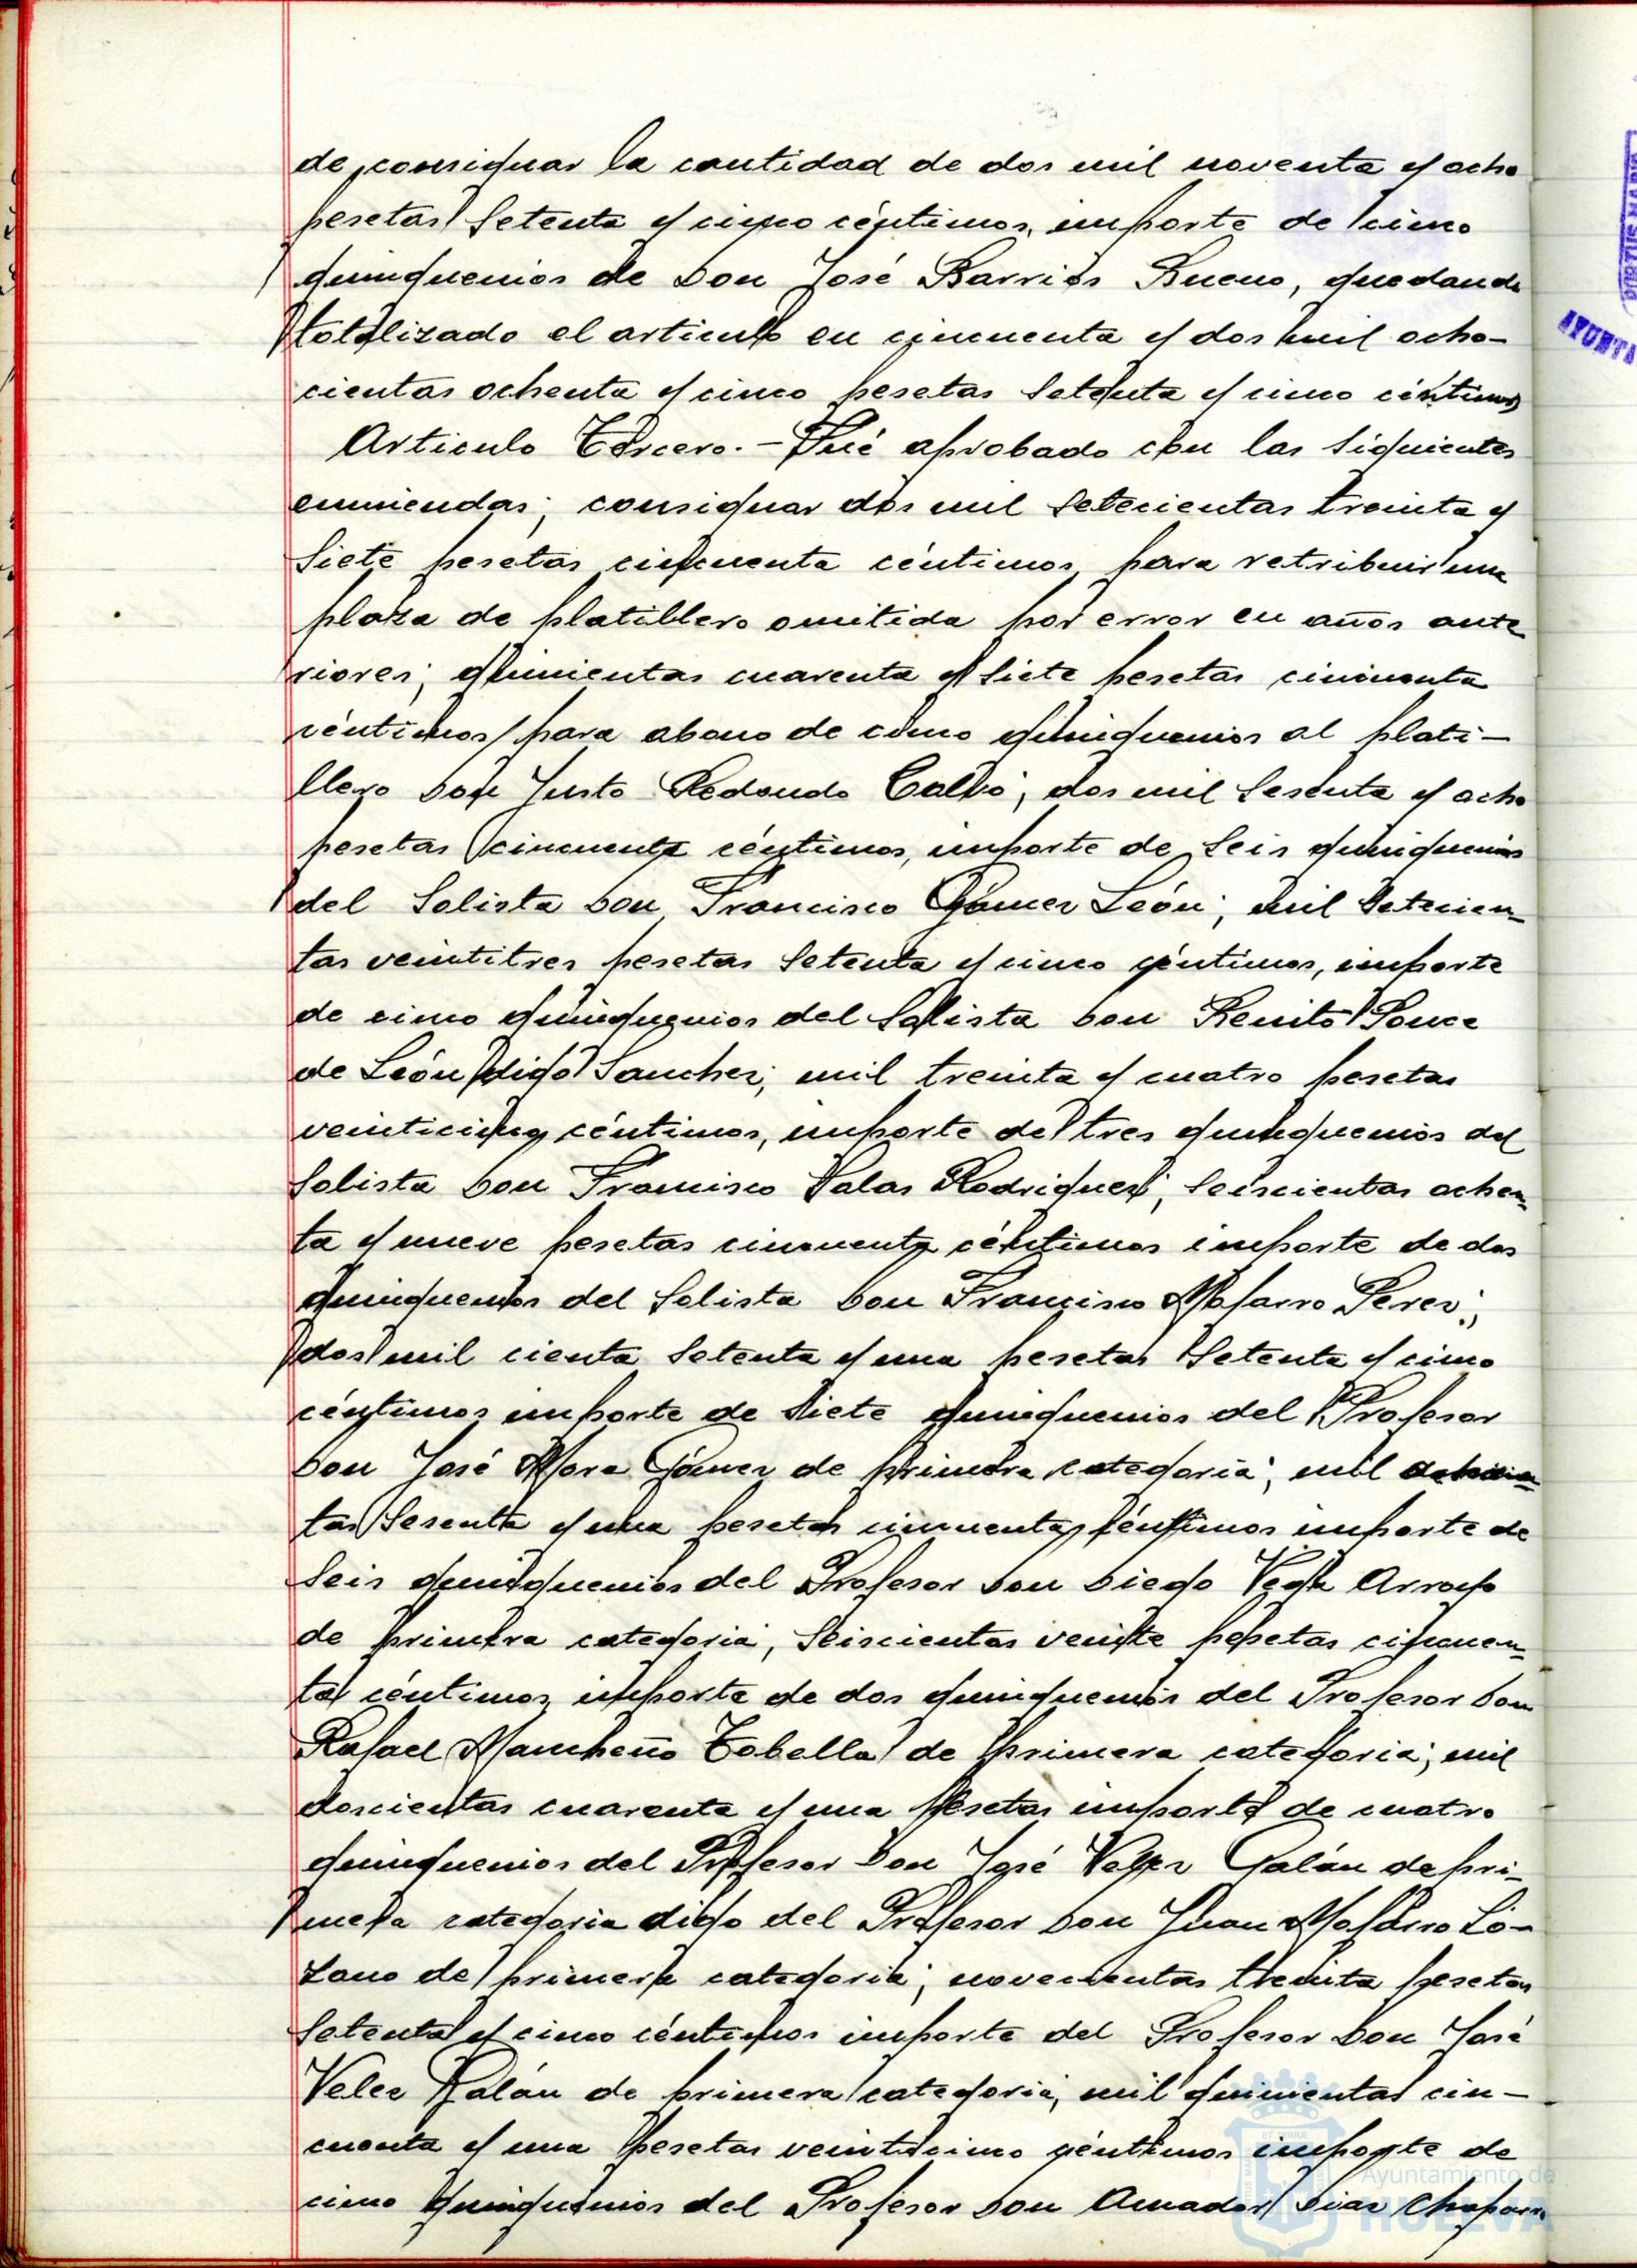 de consignar la cantidad de dos mil noventa y ocho
pesetas setenta y cinco céntimos, importe de cinco
quinquenios de Don José Barrios Bueno, quedando
totalizado el articulo en cincuenta y dos mil ocho-
cientas ochenta y cinco pesetas setenta y cinco céntimos
Articulo Tercero.- Fué aprobado con las siguientes
enmiendas; consignar dos mil setecientas treinta y
siete pesetas cincuenta céntimos, para retribuir una
plaza de platillero omitida por error en años ante
riores; quinientas cuarenta y siete pesetas cincuenta
céntimos para abono de cinco quinquenios al plati-
llero Don Justo Redondo Calvo; dos mil sesenta y ocho
pesetas cincuenta céntimos, importe de seis quinquenios
del Solista Don Francisco Gómez León; mil setecien-
tas veintitres pesetas setenta y cinco céntimos, importe
de cinco quinquenios del Solista Don Benito Ponce
de León digo Sanchez; mil treinta y cuatro pesetas
veinticinco céntimos, importe de tres quinquenios del
Solista Don Francisco Salas Rodriguez; seiscientas ochen-
ta y nueve pesetas cincuenta céntimos importe de dos
quinquenios del Solista Don Francisco Mofarro Perez;
dos mil cienta setenta y una pesetas setenta y cinco
céntimos importe de siete quinquenios del Profesor
Don José Mora Gómez de primera categoria; mil
tas sesenta y una pesetas cincuenta céntimos importe de
seis quinquenios del Profesor Don Diego Vega Arroyo
de primera categoria, seiscientas veinte pesetas cincuen-
ta céntimos, importe de dos quinquenios del Profesor Don
Rafael Mancheño Tobella de primera categoria; mil
doscientas cuarenta y una pesetas importe de cuatro
quinquenios del Profesor Don José Velez Galán de pri-
mera categoria digo del Profesor Don Juan Mofarro Lo-
zano de primera categoria; novecientas treinta pesetas
setenta y cinco céntimos importe del Profesor Don José
Velez Galán de primera categoria, mil quinientas cin-
cuenta y una pesetas veinticinco céntimos importe de
cinco quinquenios del Profesor Don Amador Diaz Chaparro
Ayuntamiento de
HUELVA
PORTUS MARIS
AYUNTA